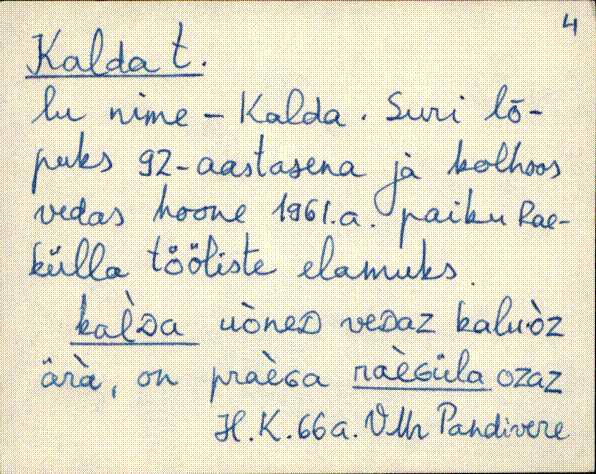 4
Kalda t.
lu nime – Kalda. Suri lõ-
puks 92-aastasena ja kolhoos
vedas hoone 1961.a. paiku Rae-
külla tööliste elamuks.
kal̀ᴅa uòneᴅ veᴅaz kaluòz
ärà, on praèɢa raèɢüla ozaz
H.K. 66a. VMr Pandivere